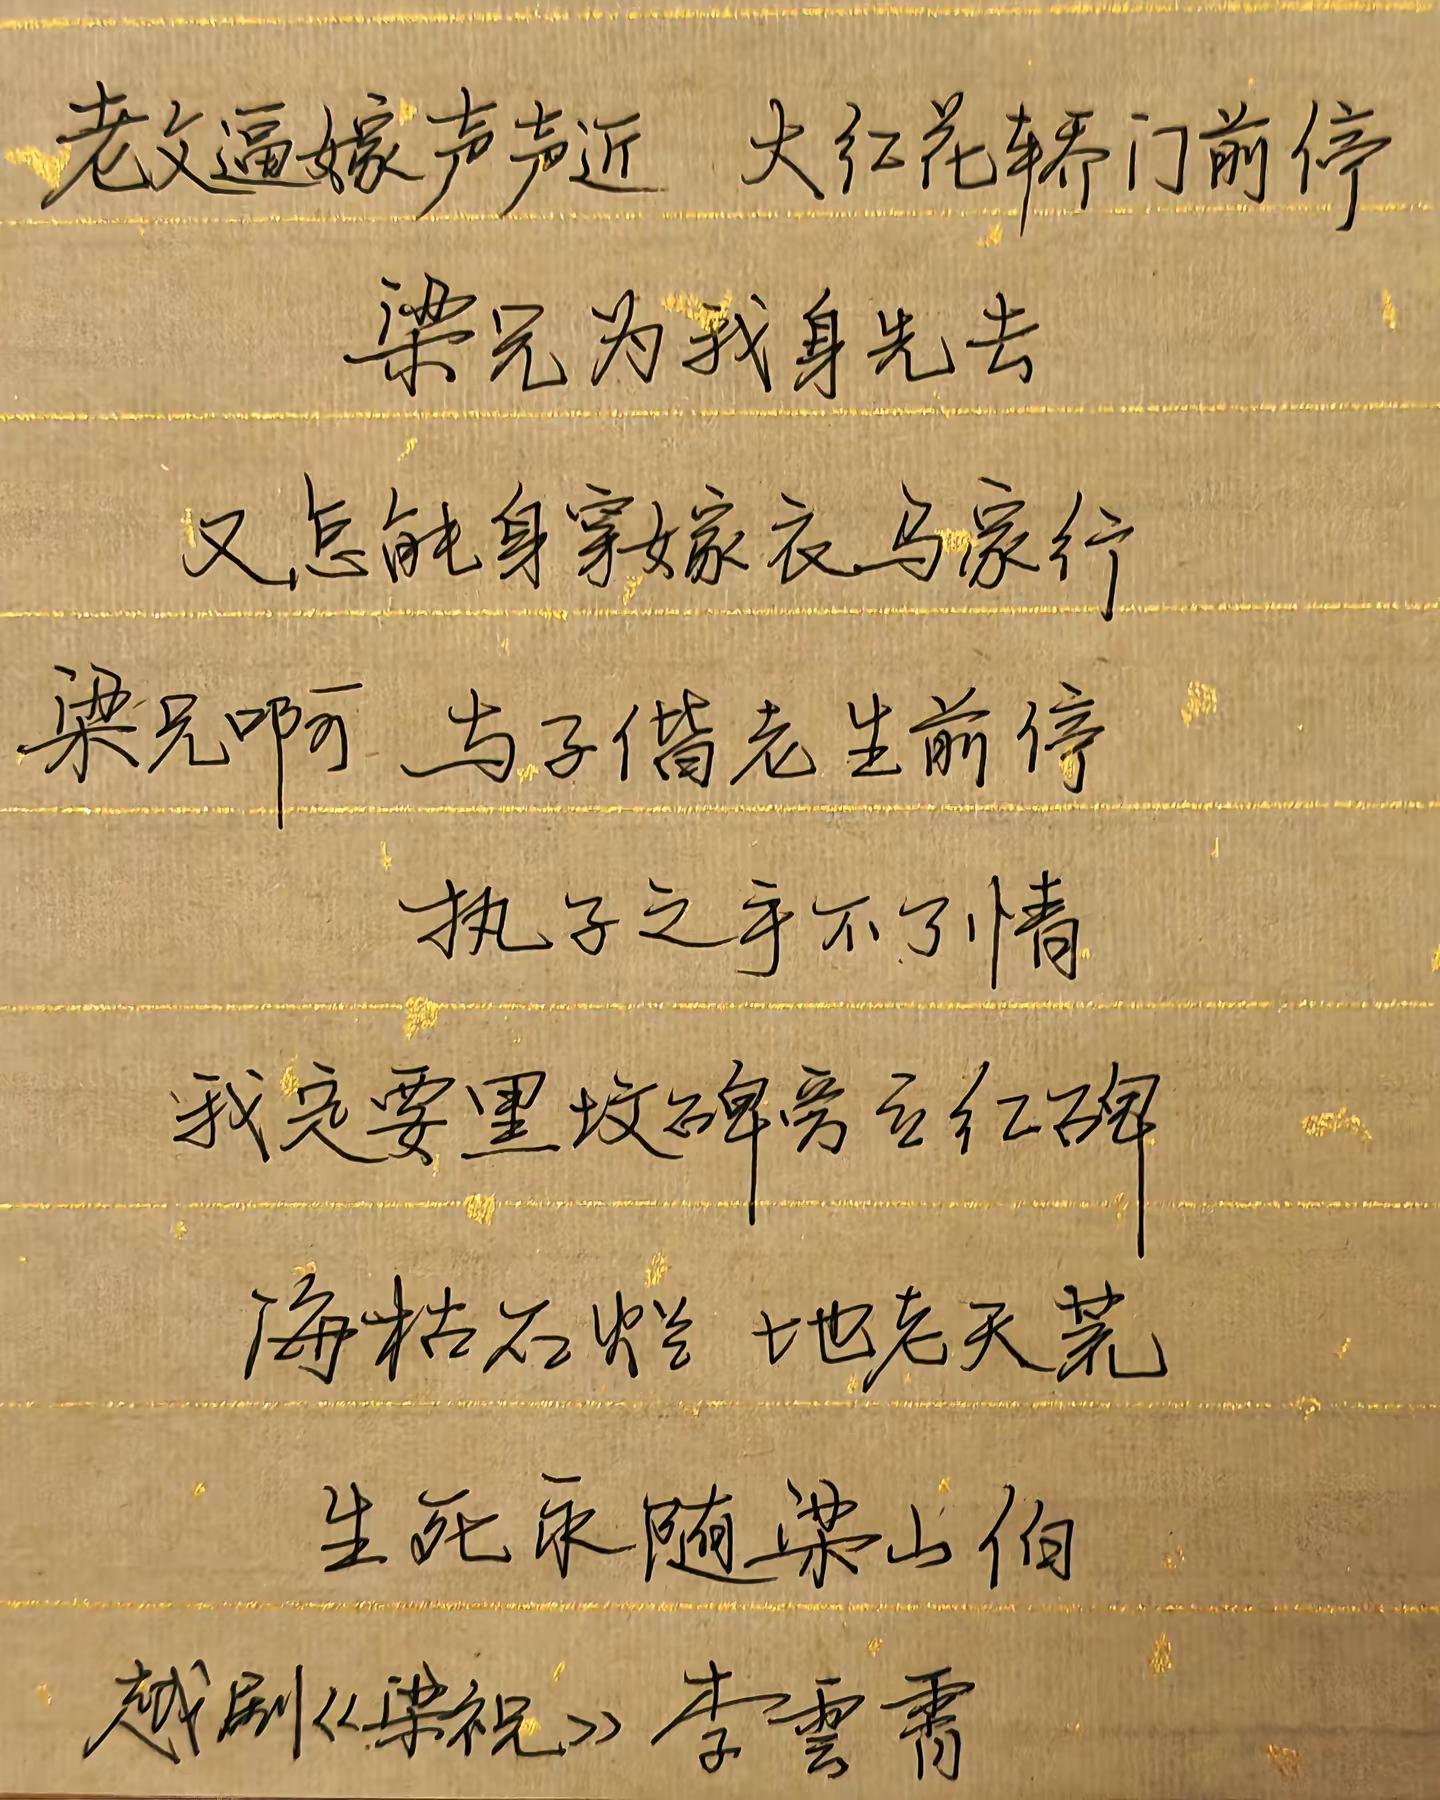 老父逼嫁声声近 大红花轿门前停
梁兄为我身先去
又怎能身穿嫁衣马家行
梁兄啊 与子偕老生前停
执子之手不了情
我定要黑坟碑旁立红碑
海枯石烂 地老天荒
生死永随梁山伯
越剧《梁祝》李雲霄